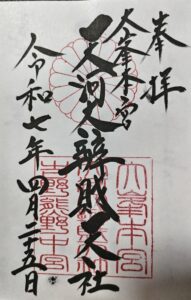 奉拝
大峯本宮
天河大辨財天社
令和七年四月二十五日
大峯本宮
吉野熊野中宮